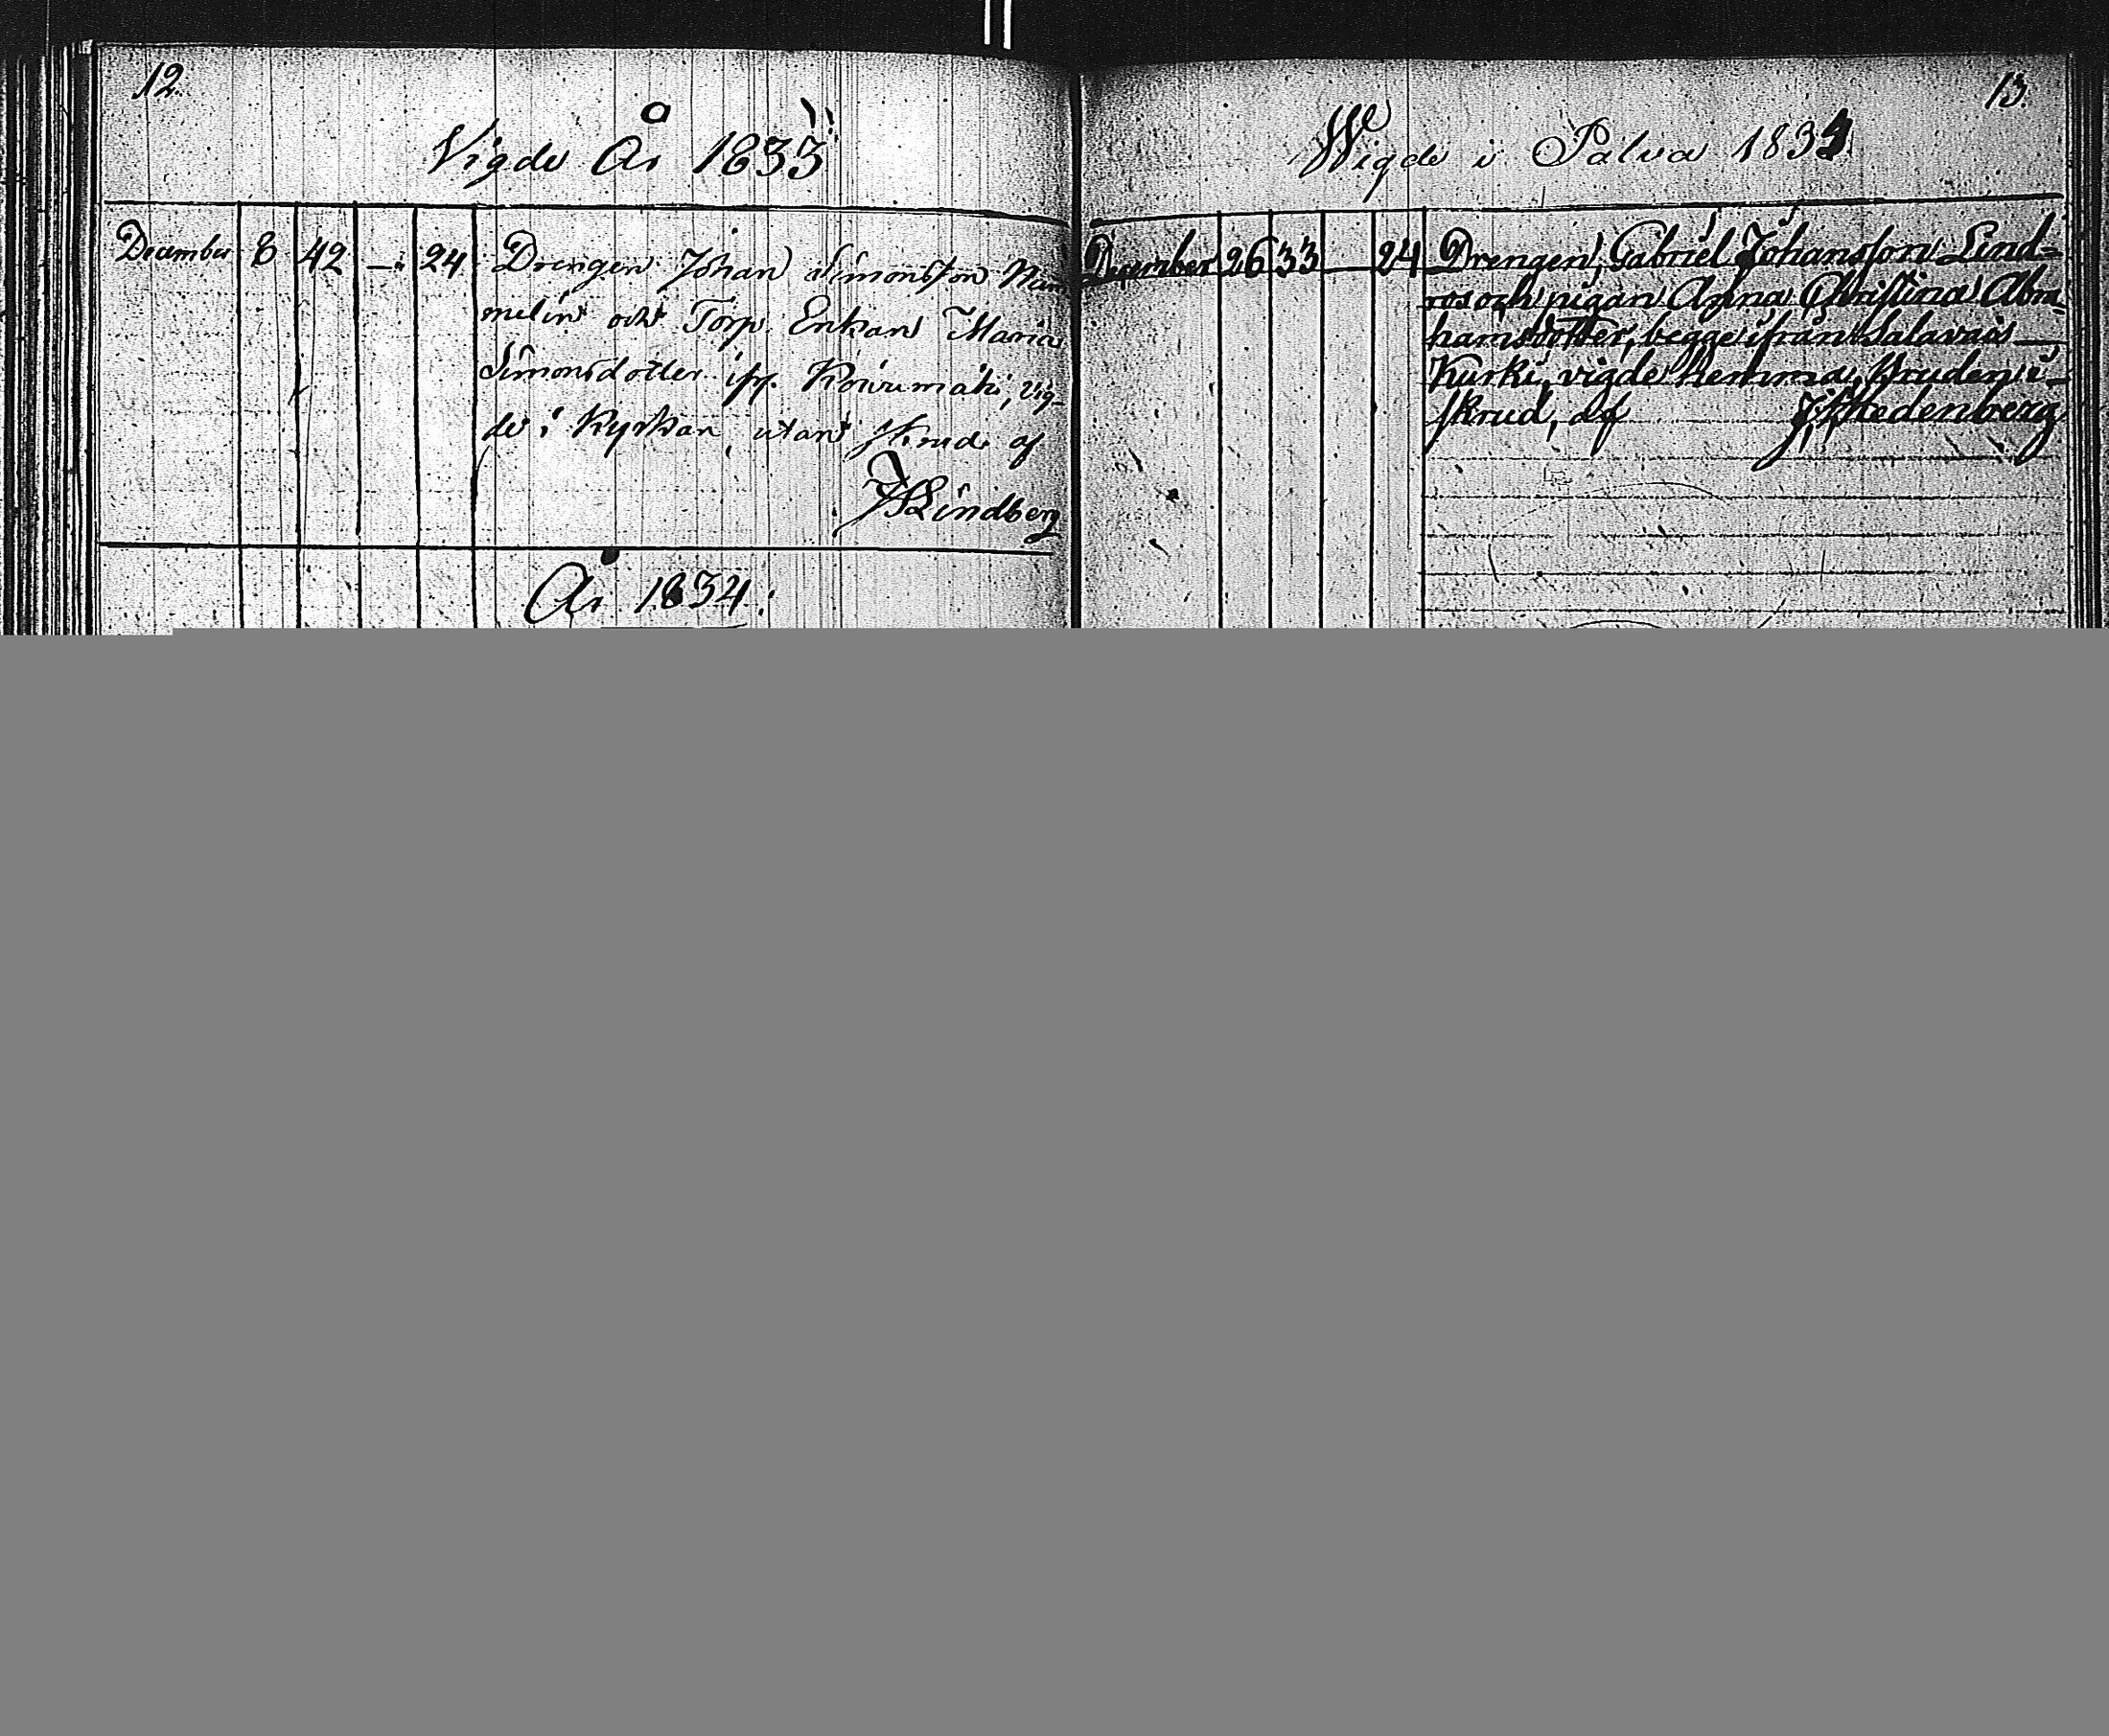 12.
Vigde År 1833
December 8 42 — 24 Drengen Johan Simonsson Num
melin och Torp. Enkan Maria
Simonsdotter ifr. Koivumäki, vig-
de i Kyrkan, utan skrud af
Lindberg
År 1834.
13.
Wigde i Palva 1834
December 26 33 — 24 Drengen, Gabriel Johansson Lind=
ros och pigan Anna Christina Abra-
hamsdotter, begge ifrån Salavais
Kurki, vigde hemma, Bruden i
skrud, af J. Hedenberg